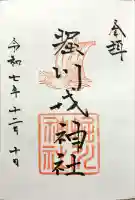 奉拝
堀川戎神社
令和七年十二月十日